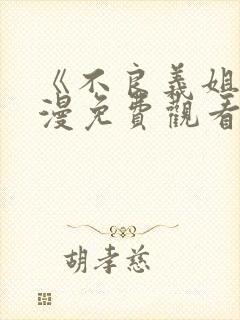 《不良義姐
漫免費觀看
胡孝慈